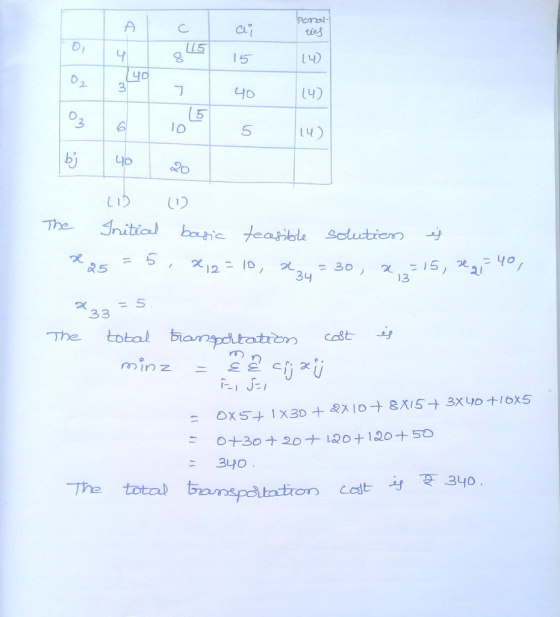 A C ai Penal-
ties
O1 4 8 15 15 (4)
O2 3 40 7 40 (4)
O3 6 10 5 5 (4)
bj 40 20
(1) (1)
The Initial basic feasible solution is
x25 = 5, x12 = 10, x34 = 30, x13 = 15, x21 = 40,
x33 = 5.
The total transportation cost is
min z = m n Σ Σ cij xij
i=1 j=1
= 0x5 + 1x30 + 2x10 + 8x15 + 3x40 + 10x5
= 0+30+20+120+120+50
= 340.
The total transportation cost is ₹ 340.